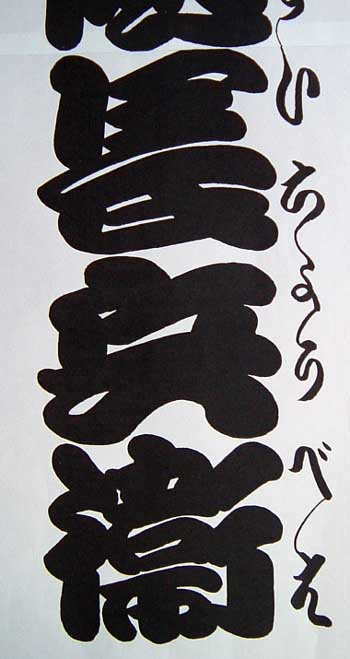 長兵衛
ちようべえ